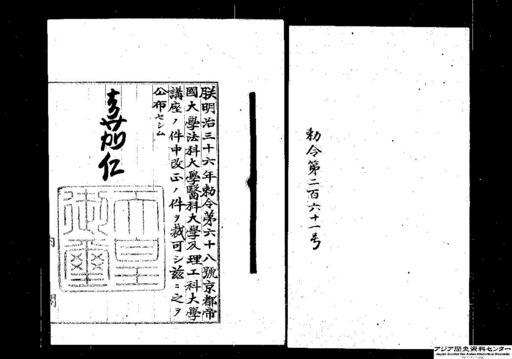 勅令第二百六十一号
朕明治三十六年勅令第六十八號京都帝
國大學法科大學醫科大學及理工科大學
講座ノ件中改正ノ件ヲ裁可シ茲ニ之ヲ
公布セシム
嘉仁
天皇
御璽
内閣
アジア歴史資料センター
Japan Center for Asian Historical Records